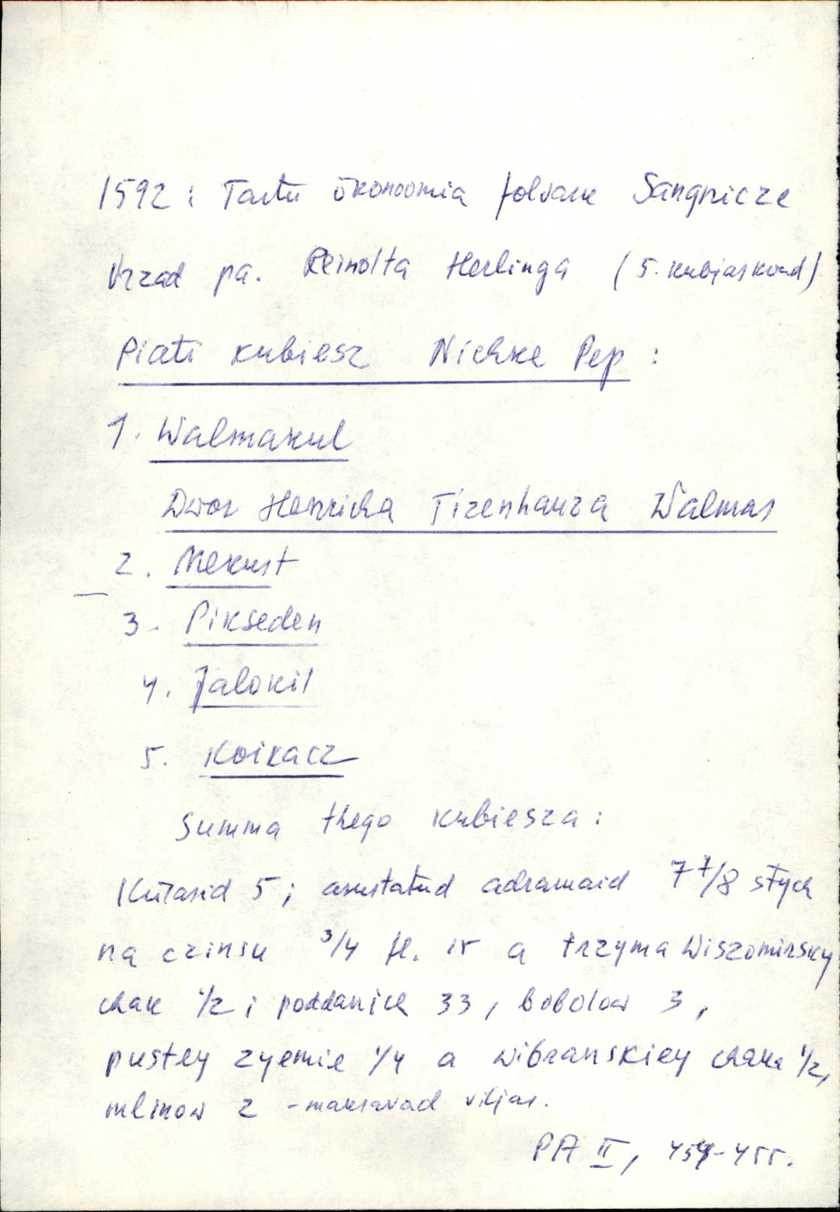 1592: Tartu ökonoomia folvark Sangnicze
Vrzad pa. Reinolta Herlinga (5. kubjaskond)
Piati kubiesz Nickke Pep:
1. Walmakul
Dwor Henricha Tizenhauza Walmas
2. Mekust
3. Pikseden
4. Jalokil
5. Koikacz
Summa thego kubiesza:
Külasid 5; asustatud adramaid 7 7/8 s tych
na czinsu 3/4 fl. a trzyma Wiszomirsky
1/2; poddanich 33, bobolow 3,
pustey zyemie 1/4 a wibranskiey 1/2,
mlinow 2 - maksavad viljas.
PA II, 454-455.